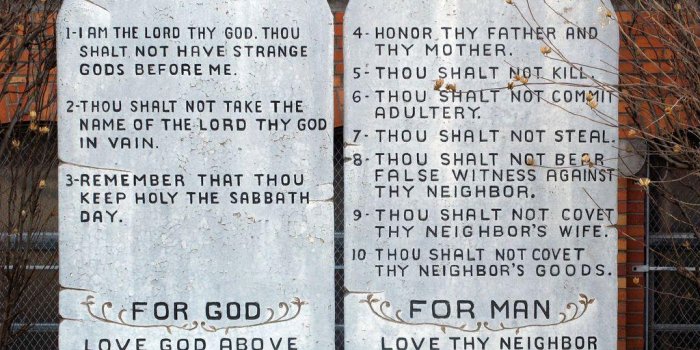 1-I AM THE LORD THY GOD. THOU
SHALT NOT HAVE STRANGE
GODS BEFORE ME.
2-THOU SHALT NOT TAKE THE
NAME OF THE LORD THY GOD
IN VAIN.
3-REMEMBER THAT THOU
KEEP HOLY THE SABBATH
DAY.
FOR GOD
LOVE GOD ABOVE
4- HONOR THY FATHER AND
THY MOTHER.
5- THOU SHALT NOT KILL.
6- THOU SHALT NOT COMMIT
ADULTERY.
7- THOU SHALT NOT STEAL.
8- THOU SHALT NOT BEAR
FALSE WITNESS AGAINST
THY NEIGHBOR.
9- THOU SHALT NOT COVET
THY NEIGHBOR'S WIFE.
10 THOU SHALT NOT COVET
THY NEIGHBOR'S GOODS.
FOR MAN
LOVE THY NEIGHBOR